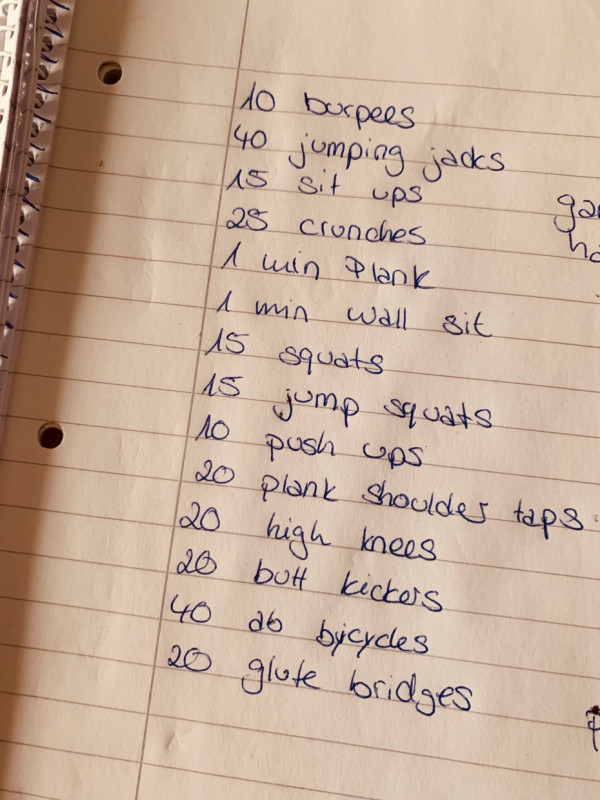 10 burpees
40 jumping jacks
15 sit ups
25 crunches
1 min Plank
1 min wall sit
15 squats
15 jump squats
10 push ups
20 plank shoulder taps
20 high knees
20 butt kickers
40 ab bycycles
20 glute bridges